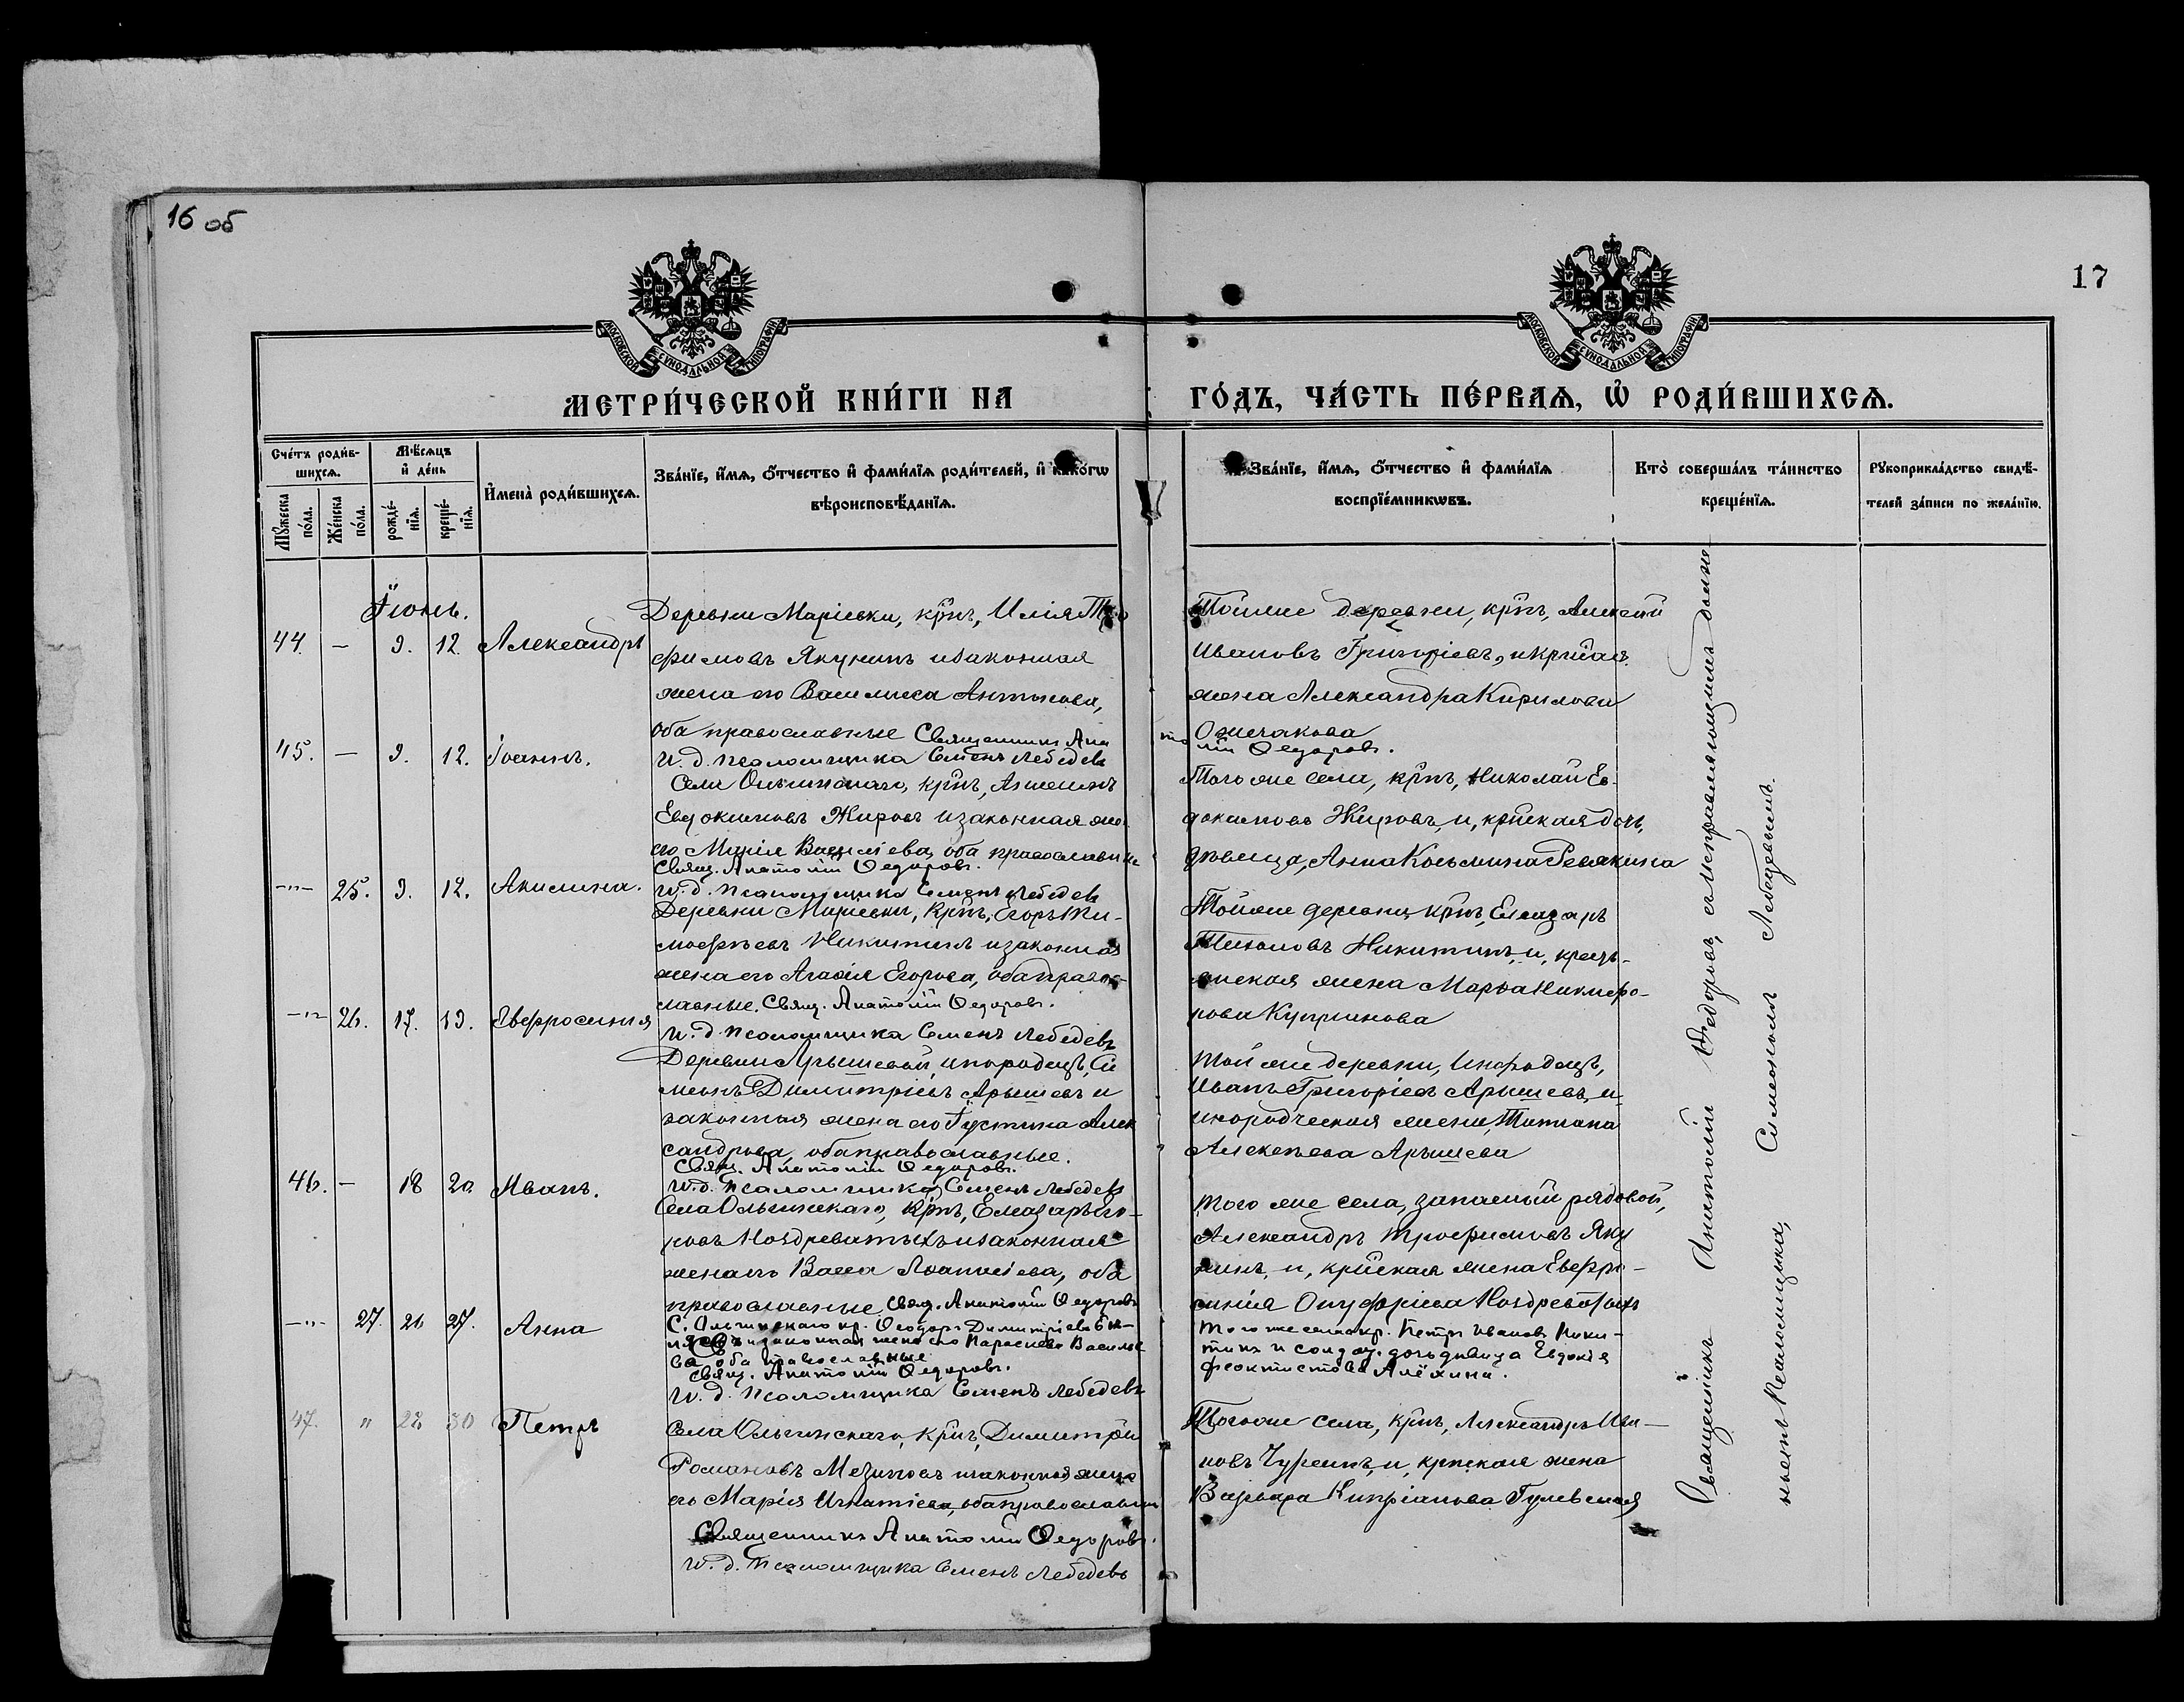 16 об
17
МОСКОВСКОЙ СѴНОДАЛЬНОЙ ТИПОГРАФІИ
МОСКОВСКОЙ СѴНОДАЛЬНОЙ ТИПОГРАФІИ
МЕТРИ́ЧЕСКОЙ КНИ́ГИ НА ГО́ДЪ, ЧА́СТЬ ПЕ́РВАѦ, Ѡ҆ РОДИ́ВШИХСѦ.
Сче́тъ роди́вшихсѧ.
Мꙋжеска по́ла.
Же́нска по́ла.
Мѣ́сѧцъ и҆ де́нь
рожде́нїѧ.
креще́нїѧ.
И҆мена̀ роди́вшихсѧ.
Зва́нїе, и҆́мѧ, ѻ҆́тчество и҆ фами́лїѧ роди́телей, и҆ како́гѡ вѣроисповѣ́данїѧ.
Зва́нїе, и҆́мѧ, ѻ҆́тчество и҆ фами́лїѧ воспрїе́мникѡвъ.
Кто̀ соверша́лъ та́инство креще́нїѧ.
Рꙋкоприкла́дство свидѣ́телей за́писи по жела́нїю.
Іюнь.
44. — 9. 12. Александръ
Деревни Маріевки, крнъ, Илія Тро
фимовъ Якунинъ и законная
жена его Василиса Антонова,
оба православные Священникъ Ана
толій Ѳедоровъ.
И. д. псаломщика Семенъ Лебедевъ
Тойже деревни, крнъ, Алексѣй
Ивановъ Григорьевъ, и крнская
жена Александра Кирилова
Ожегакова
45. — 9. 12. Іоаннъ.
Села Ольгинскаго, крнъ,
Евдокимовъ Жировъ и законная же
его Марія Васильева, оба православны
Свящ. Анатолій Ѳедоровъ.
И. д. псаломщика Семенъ Лебедевъ
Того же села, крнъ, Николай Ев-
докимовъ Жировъ, и, крнская дочь,
дѣвица, Анна Косьмина Ревякина
—"— 25. 9. 12. Акилина.
Деревни Маріевки, крнъ, Егоръ Ти-
мофеевъ Никитинъ и законная
жена его Агафія Егорова, оба право
славные. Свящ. Анатолій Ѳедоровъ.
И. д. псаломщика Семенъ Лебедевъ
Тойже деревни крнъ, Елизаръ
Никитинъ, и, кресть-
янская жена Марѳа Никифо-
рова Куприянова
—"— 26. 17. 19. Евфросинія
Деревни Арышевой, инородецъ, Си
меонъ Димитріевъ Арышевъ и
законная жена его Густина Алек
сандрова, оба православные.
Свящ. Анатолій Ѳедоровъ.
И. д. псаломщика Семенъ Лебедевъ
Той же деревни, инородецъ,
Иванъ Григоріевъ Арышевъ, и
инородческая жена, Татiана
Алексѣева Арышева
46. — 18 20. Иванъ.
Села Ольгинскаго, крнъ, Елеазаръ Его-
ровъ Ноздреватыхъ и законная
жена его Васса Ананьева, оба
православные Свящ. Анатолій Ѳедоровъ
Того же села, запасный рядовой,
Александръ Трофимовъ Яку
нинъ, и, крнская жена Евфро-
синія Онуфріева Ноздреватыхъ
—"— 27. 21 27. Анна
С. Ольгинскаго кр. Ѳеодоръ Димитріевъ
и законная жена его Параскева Василье
ва оба православные
Свящ. Анатолій Ѳедоровъ.
И. д. псаломщика Семенъ Лебедевъ
Того же села кр. Петръ Ивановъ Ники-
тинъ и солдат. дочь дѣвица Евдокія
Феоктистова Алёхина.
47. " 22 30 Петръ
Села Ольгинскаго, крнъ, Димитрій
Романовъ Мезинцевъ и законная жена
его Марія Игнатіева, оба православны
Священникъ Анатолій Ѳедоровъ.
И. д. Псаломщика Семенъ Лебедевъ
Тогоже села, крнъ, Александръ Ива-
новъ Чуринъ, и, крнская жена
Варвара Кипріанова Гулевская
Священникъ Анатолій Ѳедоровъ, съ исправляющимъ долж
ность Псаломщика, Симеономъ Лебедевымъ.